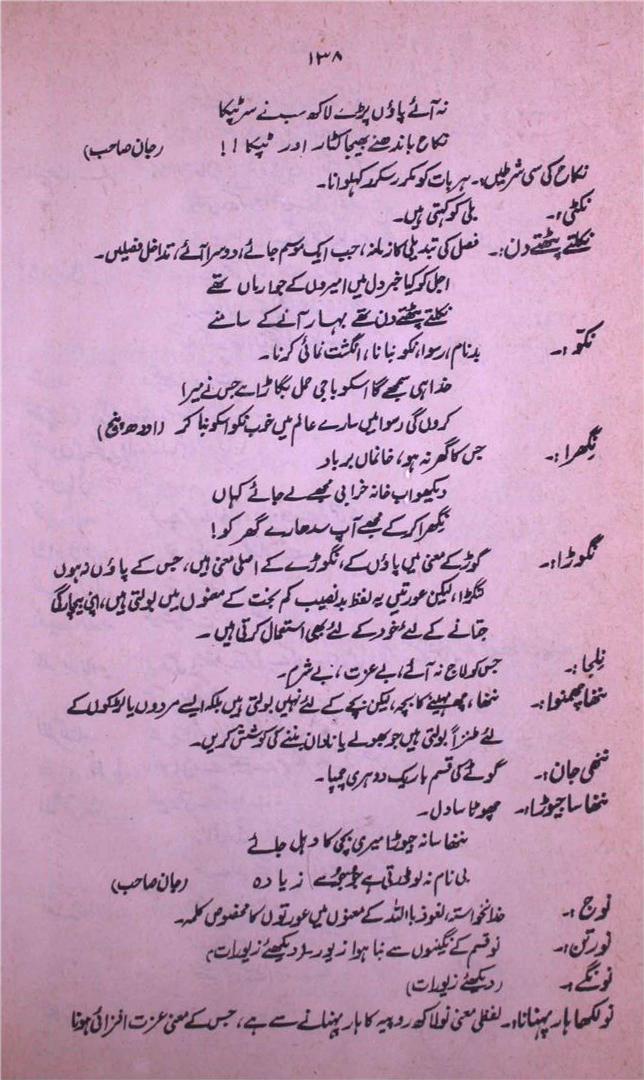 ۱۳۸
نہ آئے پاؤں پڑے لاکھ سب نے سر ٹپکا
نکاح باندھنے بھیجا کٹار اور ٹپکا!! (جان صاحب)
نکاح کی سی شرطیں:۔ ہر بات کو مکرر سکرر کہلوانا۔
نکٹی:۔ بلی کو کہتی ہیں۔
نکلتے پیٹھتے دن:۔ فصل کی تبدیلی کا زمانہ، جب ایک موسم جائے، دوسرا آئے، تداخل فصلیں۔
اجل کو کیا خبر دل میں امیروں کے جو ارماں تھے
نکلتے پیٹھتے دن تھے بہار آنے کے سامنے
نکّو:۔ بدنام، رسوا، نکو بنانا، انگشت نمائی کرنا۔
خدا ہی سمجھے گا اسکو باجی حمل بگاڑا ہے جس نے میرا
کروں گی رسوا میں سارے عالم میں خوب نکو اسکو بنا کر (اودھ پنچ)
نِگھرا:۔ جس کا گھر نہ ہو، خانماں برباد
دیکھو اب خانہ خرابی مجھے لے جائے کہاں
نِگھرا کر کے مجھے آپ سدھارے گھر کو!
نگوڑا:۔ گوڑ کے معنی میں پاؤں کے، نگوڑے کے اصلی معنی ہیں، جس کے پاؤں نہ ہوں
لنگڑا، لیکن عورتیں یہ لفظ بدنصیب کم بخت کے معنوں میں بولتی ہیں، اپنی بیچارگی
جتانے کے لئے خود کے لئے بھی استعمال کرتی ہیں۔
نِلجا:۔ جس کو لاج نہ آئے، بے عزت، بے شرم۔
ننھا چھمنوا:۔ ننھا، چھ مہینے کا بچہ، لیکن بچے کے لئے نہیں بولتی ہیں بلکہ ایسے مردوں یا لڑکوں کے
لئے طنزاً بولتی ہیں جو بھولے یا نادان بننے کی کوشش کریں۔
ننھی جان:۔ گوٹے کی قسم باریک دوہری چمپا۔
ننھا سا جیوڑا:۔ چھوٹا سا دل۔
ننھا سا نہ جیوڑا میری بچی کا دہل جائے
بی نام نہ لو ڈرتی ہے جوجو سے زیادہ (جان صاحب)
نوج:۔ خدانخواستہ، نعوذ باللہ کے معنوں میں عورتوں کا مخصوص کلمہ۔
نورتن:۔ نو قسم کے نگینوں سے بنا ہوا زیور (دیکھئے زیورات)
نونگے:۔ (دیکھئے زیورات)
نو لکھا ہار پہنانا:۔ لفظی معنی نو لاکھ روپیہ کا ہار پہنانے سے ہے، جس کے معنی عزت افزائی ہونا